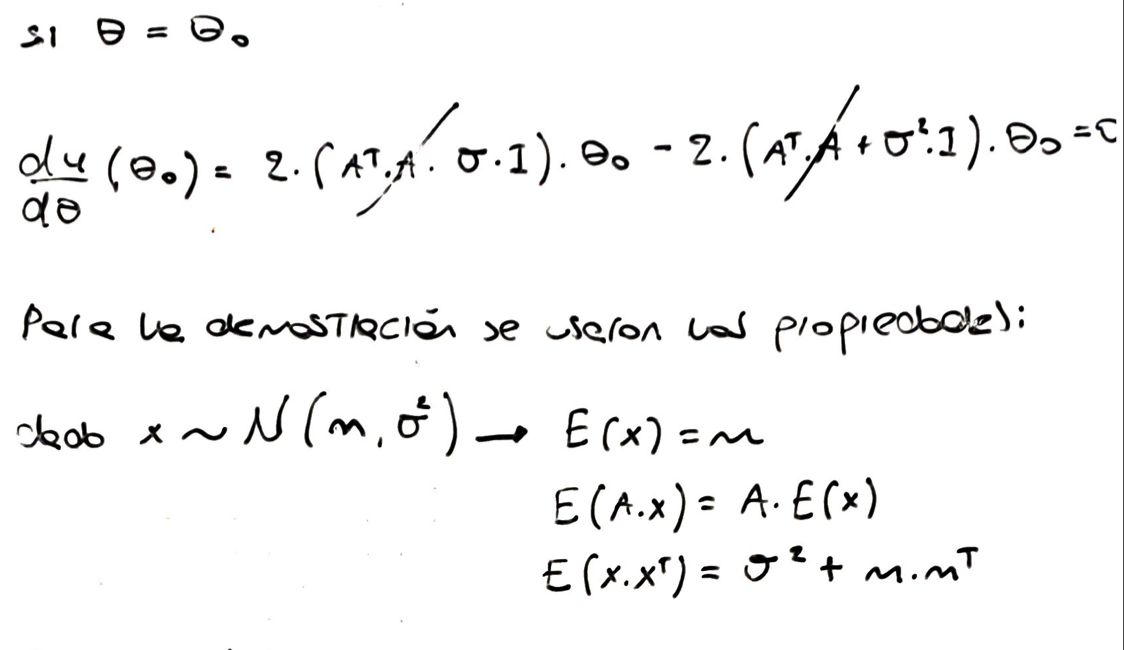 si θ = θ₀
du/dθ (θ₀) = 2.(Aᵀ.A. σ.I).θ₀ - 2.(Aᵀ.A + σ².I).θ₀ = 0
Para la demostración se usaron las propiedades:
dado x ~ N(m, σ²) → E(x) = m
E(A.x) = A.E(x)
E(x.xᵀ) = σ² + m.mᵀ